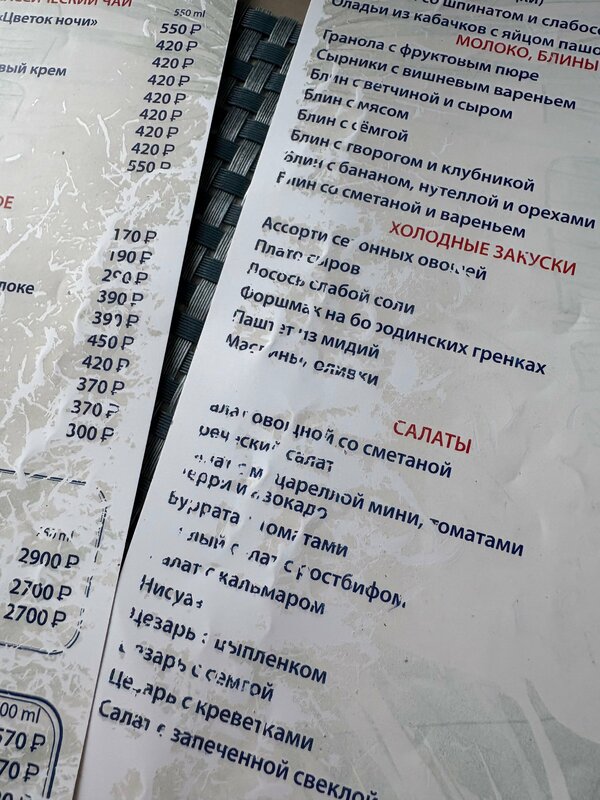 ЧАЙ
«Цветок ночи»
550 ml
550 ₽
420 ₽
420 ₽
крем
420 ₽
420 ₽
420 ₽
420 ₽
420 ₽
550 ₽
170 ₽
190 ₽
290 ₽
390 ₽
390 ₽
450 ₽
420 ₽
370 ₽
370 ₽
300 ₽
2900 ₽
2700 ₽
2700 ₽
ml
со шпинатом и
Оладьи из кабачков с яйцом пашо
МОЛОКО, БЛИНЫ
Гранола с фруктовым пюре
Сырники с вишневым вареньем
Блин с ветчиной и сыром
Блин с мясом
Блин с сёмгой
Блин с творогом и клубникой
Блин с бананом, нутеллой и орехами
Блин со сметаной и вареньем
ХОЛОДНЫЕ ЗАКУСКИ
Ассорти сезонных овощей
Плато сыров
Лосось слабой соли
Форшмак на бородинских гренках
Паштет из мидий
Маслины, оливки
САЛАТЫ
Салат овощной со сметаной
Греческий салат
Салат с моцареллой мини, томатами
черри и авокадо
Буррата с томатами
салат с ростбифом
Салат с кальмаром
Нисуаз
Цезарь с цыпленком
Цезарь с семгой
Цезарь с креветками
Салат с запеченной свеклой